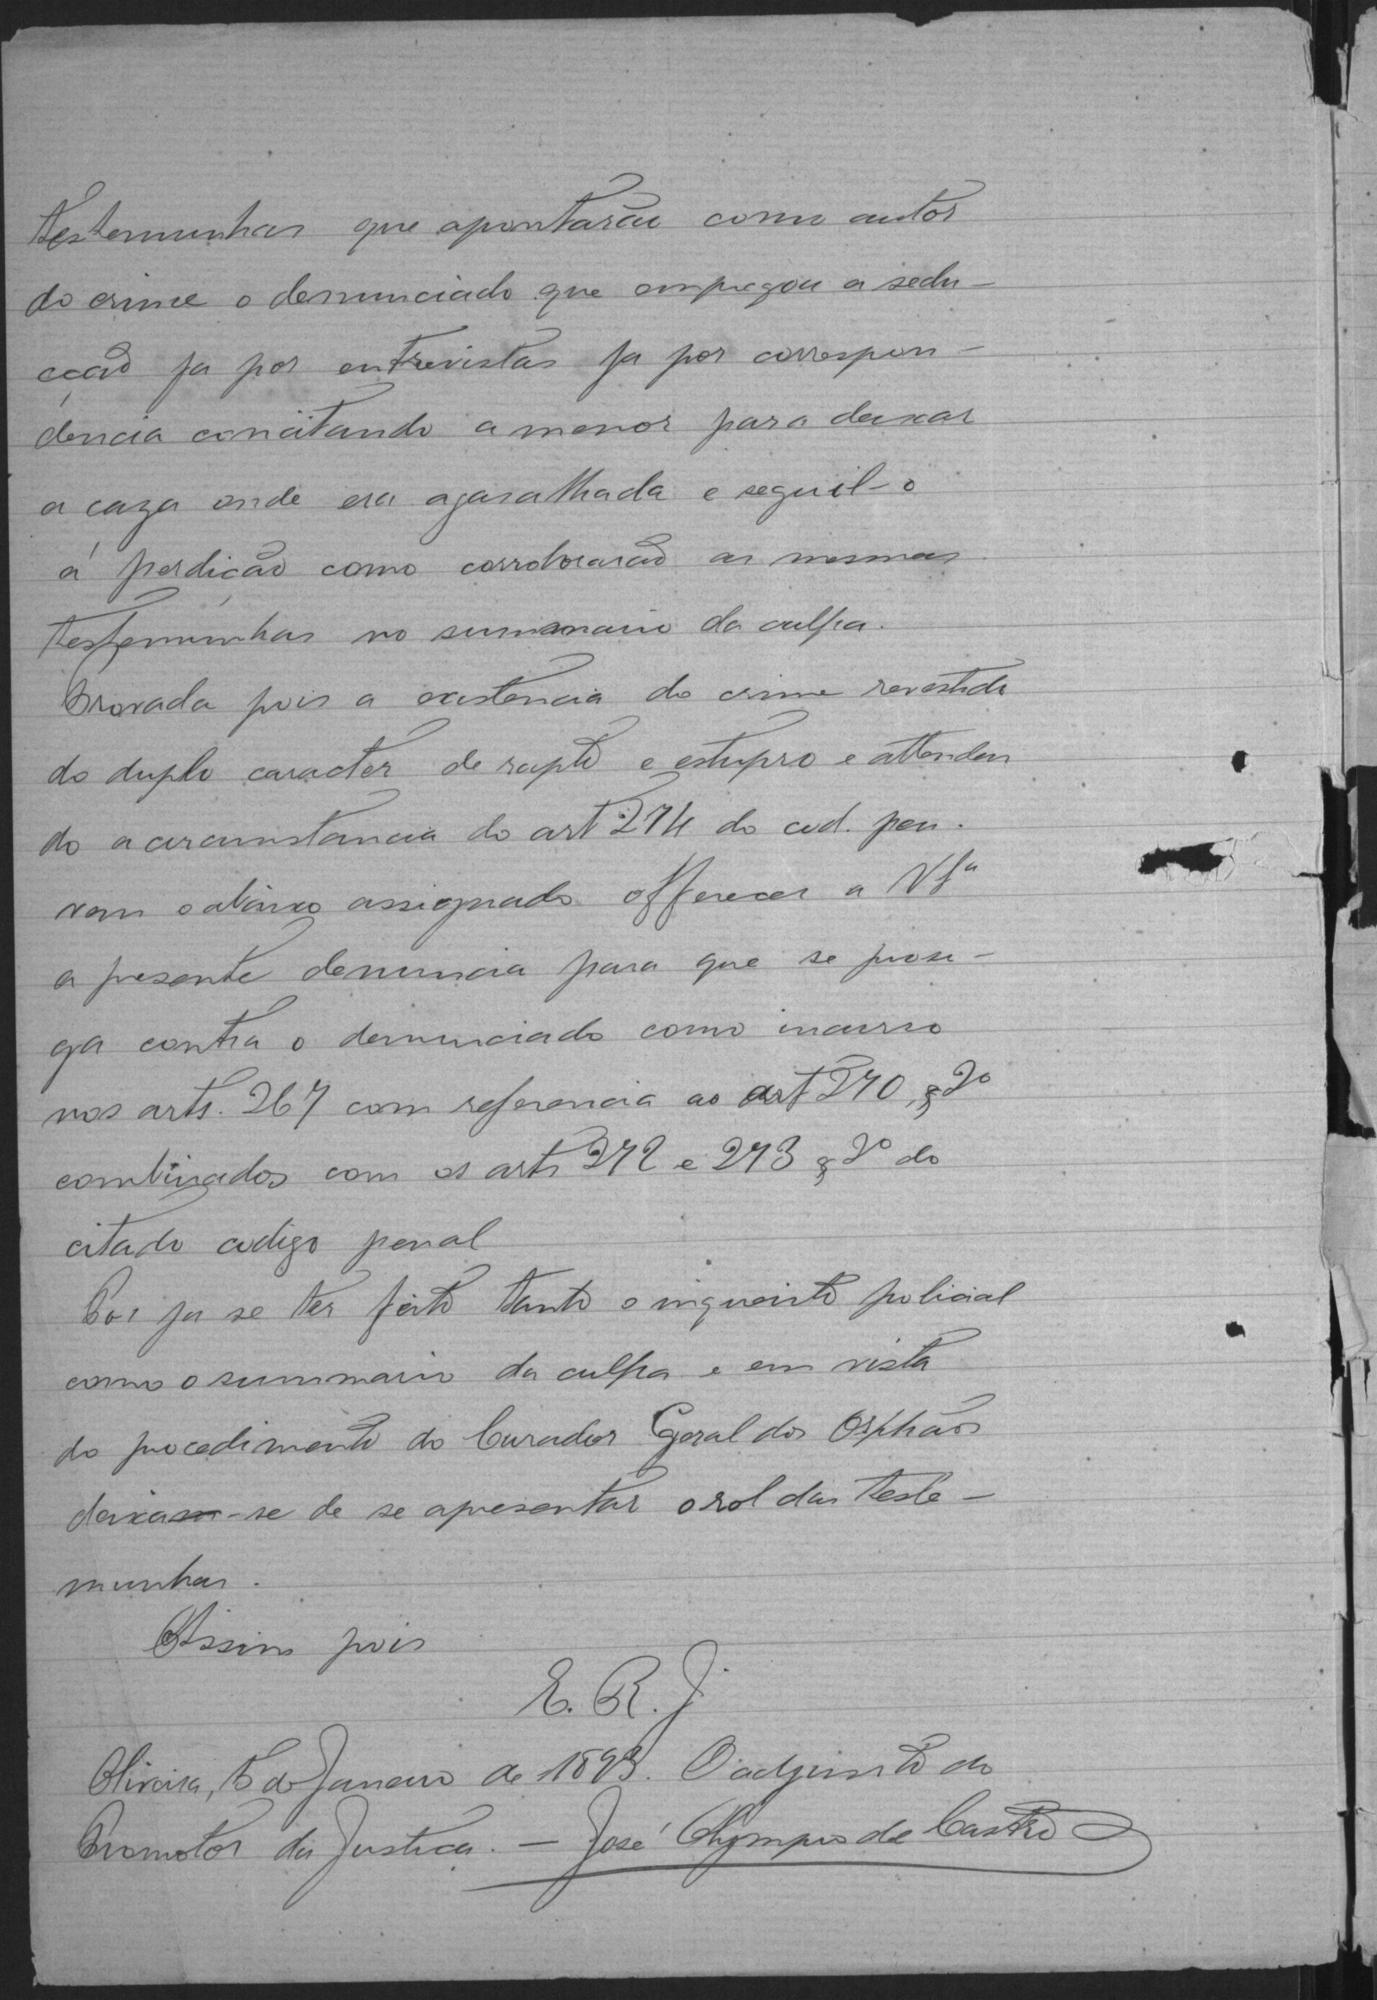 testemunhas que apontarão como autor
do crime o denunciado que empregou a sedu-
cção ja por entrevistas ja por correspon-
dencia concitando a menor para deixar
a caza onde era agasalhada e seguil-o
á perdição como corroborarão as mesmas
testemunhas no summario da culpa.
Provada pois a existencia do crime revestido
do duplo caracter de rapto e estupro e attenden
do a circunstancia do art 274 do cod. pen.
vem o abaixo assignado offerecer a VSª
a presente denuncia para que se prosi-
ga contra o denunciado como incurso
nos arts. 267 com referencia ao art 270, § 2º
combinados com os arts 272 e 273 § 2º do
citado codigo penal
Por ja se ter feito tanto o inquerito policial
como o summario da culpa e em vista
do procedimento do Curador Geral dos Orphãos
deixa-se de se apresentar o rol das teste-
munhas.
Assim pois
E. R. J.
Oliveira, 5 de Janeiro de 1893. O adjunto do
Promotor da Justiça. — José Olympio de Castro